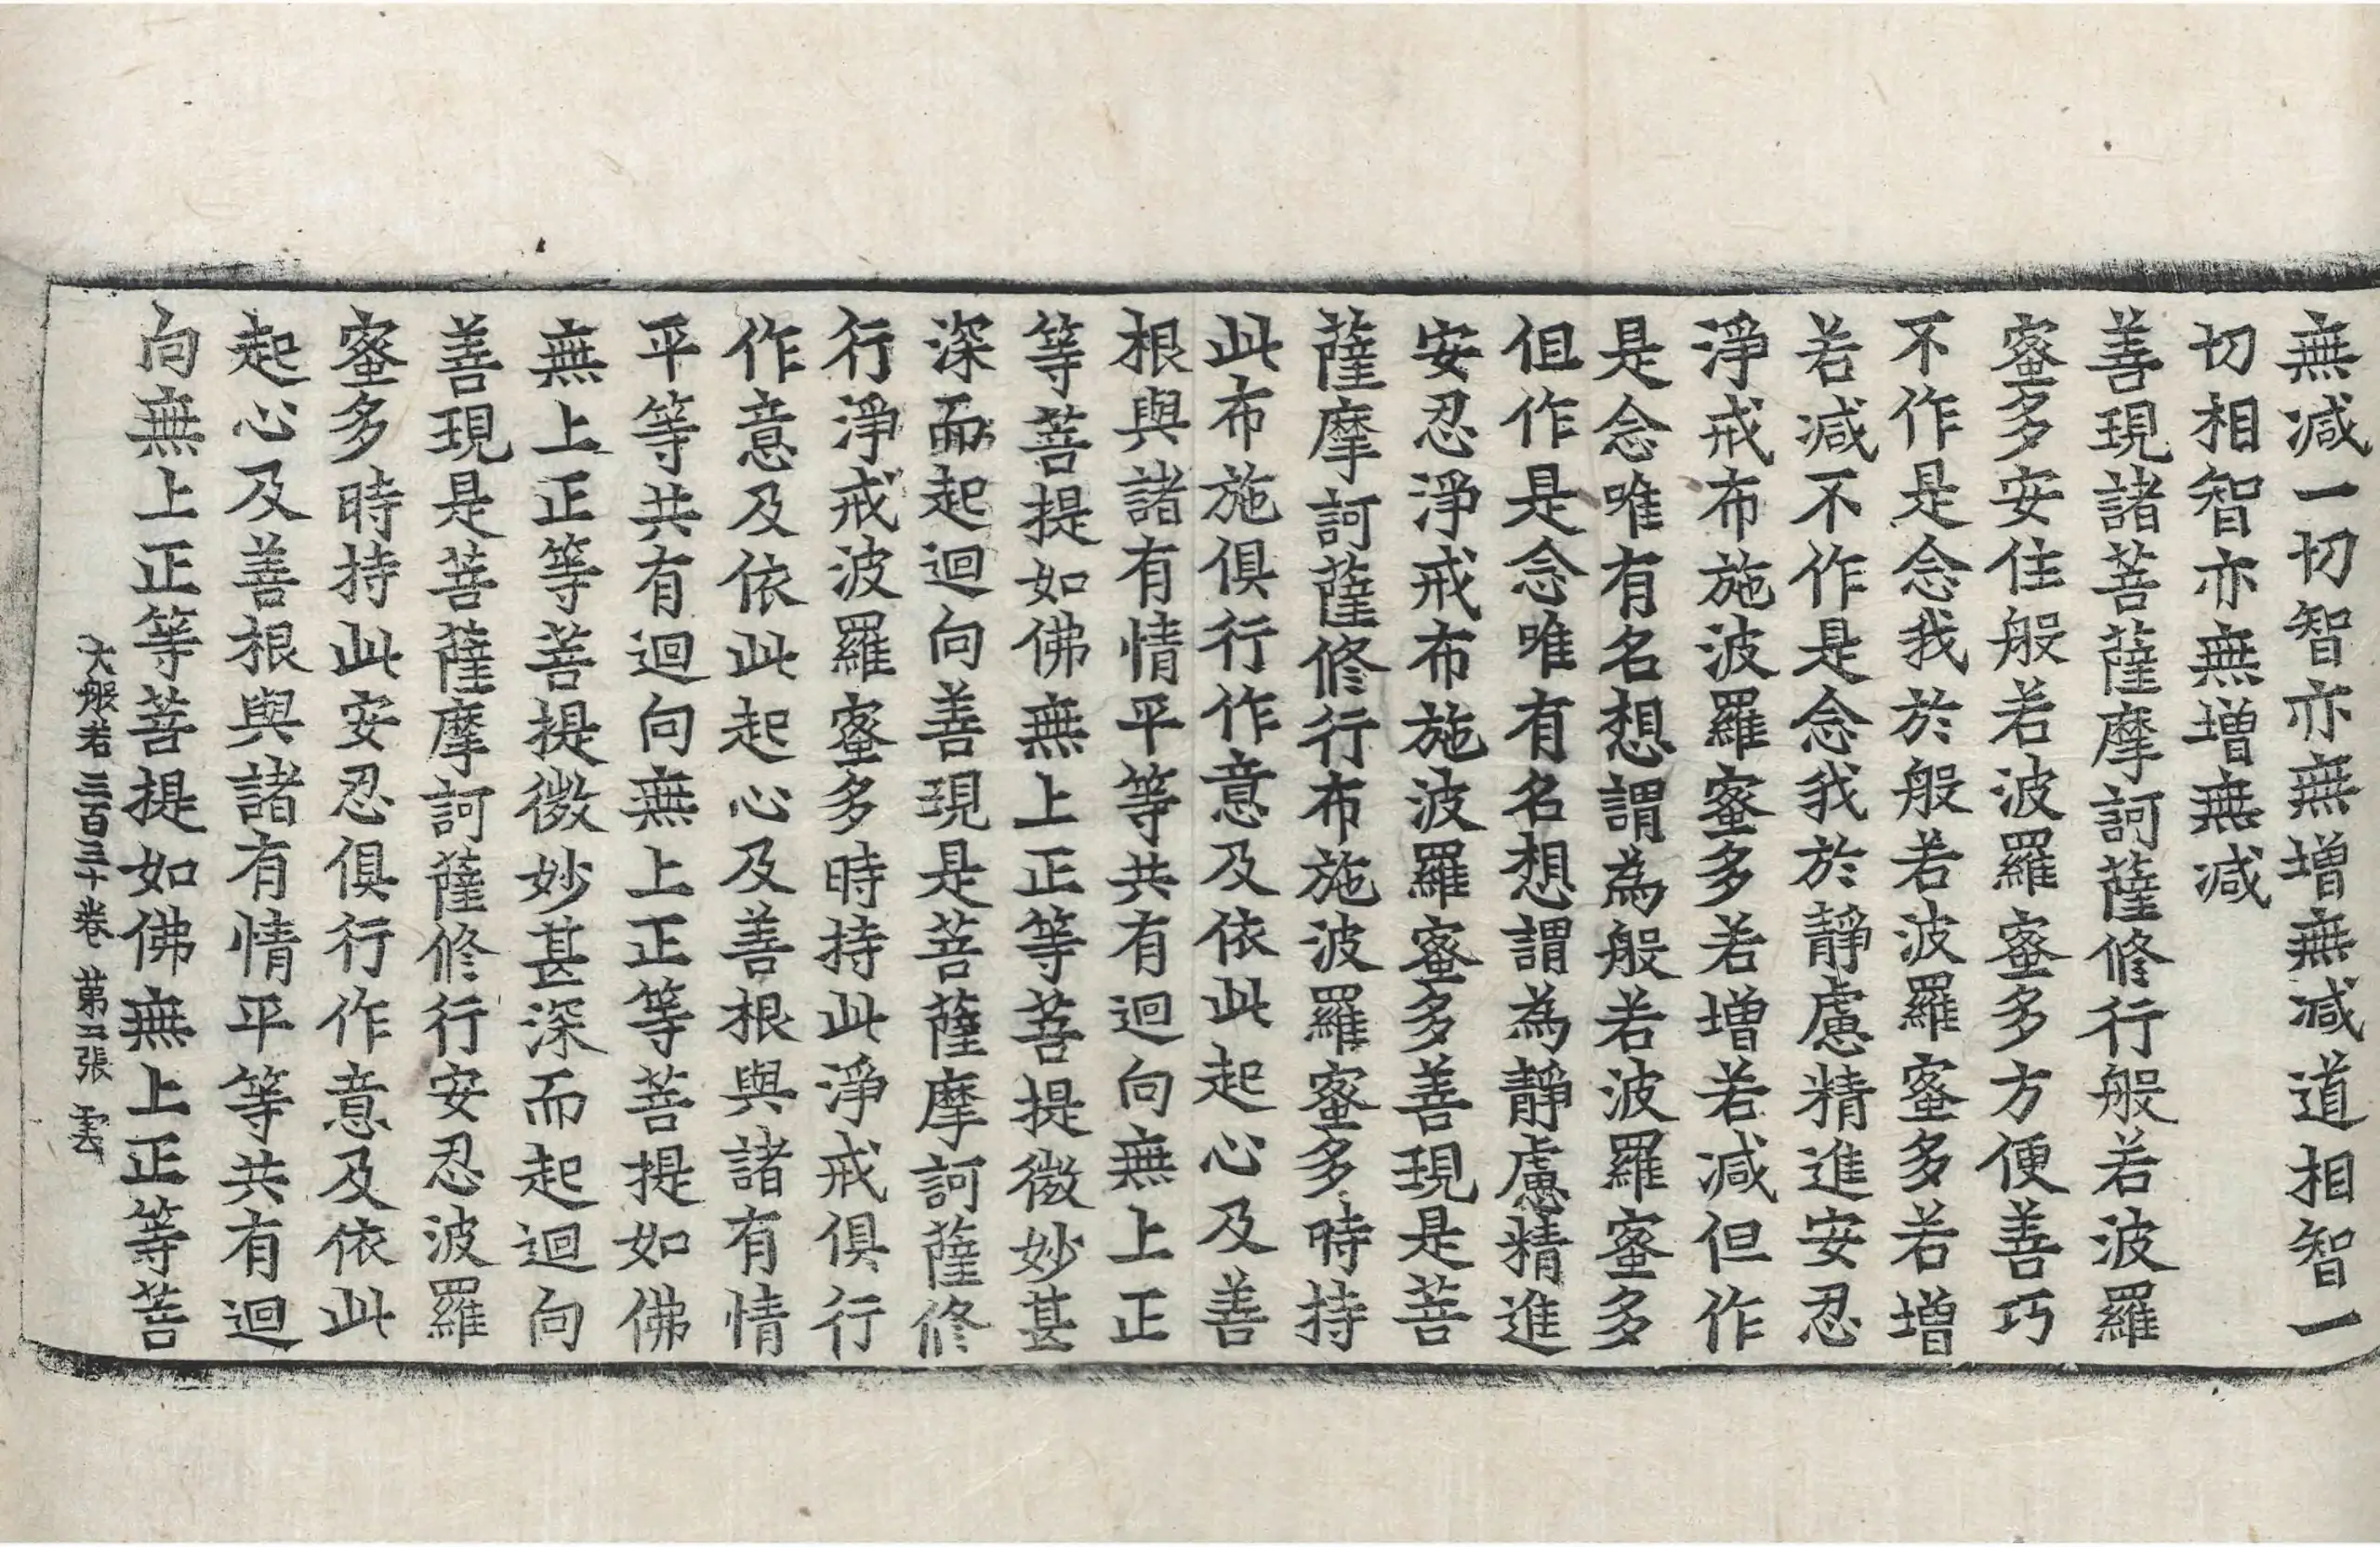 無減一切智亦無增無減道相智一
切相智亦無增無減
善現諸菩薩摩訶薩修行般若波羅
蜜多安住般若波羅蜜多方便善巧
不作是念我於般若波羅蜜多若增
若減不作是念我於靜慮精進安忍
淨戒布施波羅蜜多若增若減但作
是念唯有名想謂為般若波羅蜜多
但作是念唯有名想謂為靜慮精進
安忍淨戒布施波羅蜜多善現是菩
薩摩訶薩修行布施波羅蜜多時持
此布施俱行作意及依此起心及善
根與諸有情平等共有迴向無上正
等菩提如佛無上正等菩提微妙甚
深而起迴向善現是菩薩摩訶薩修
行淨戒波羅蜜多時持此淨戒俱行
作意及依此起心及善根與諸有情
平等共有迴向無上正等菩提如佛
無上正等菩提微妙甚深而起迴向
善現是菩薩摩訶薩修行安忍波羅
蜜多時持此安忍俱行作意及依此
起心及善根與諸有情平等共有迴
向無上正等菩提如佛無上正等菩
大般若三百三十卷 第三張 雲